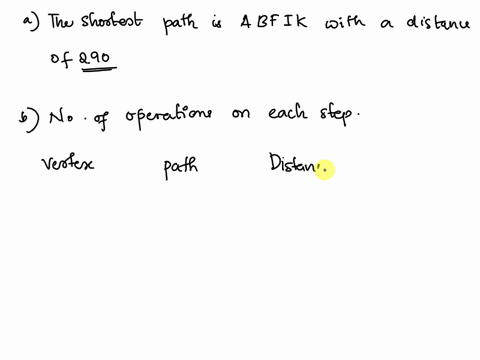 a) The shortest path is ABFIK with a distance
of 290
b) No. of operations on each step.
Vertex path Distan